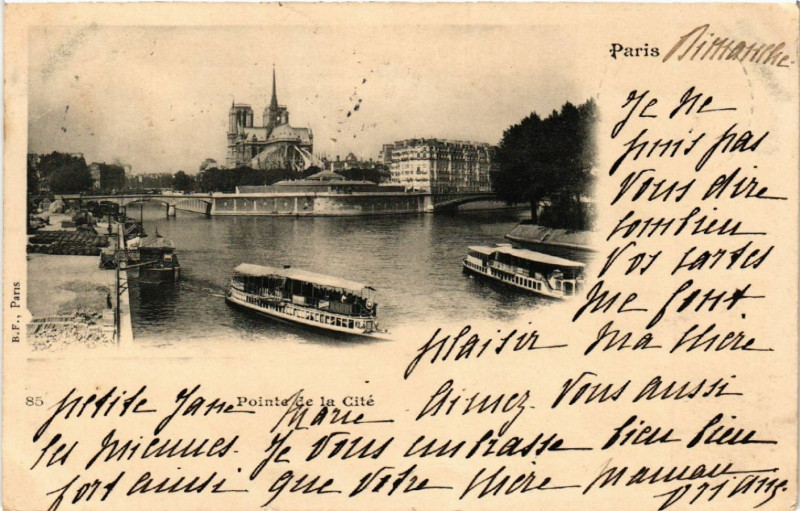 Paris Dimanche.
Je Ne
puis pas
Vous dire
combien
Vos cartes
me font
plaisir Ma chère
petite Jane Marie Aimez-Vous aussi
85 Pointe de la Cité
les miennes. Je Vous embrasse bien bien
fort ainsi que Votre chère maman
B.F., Paris